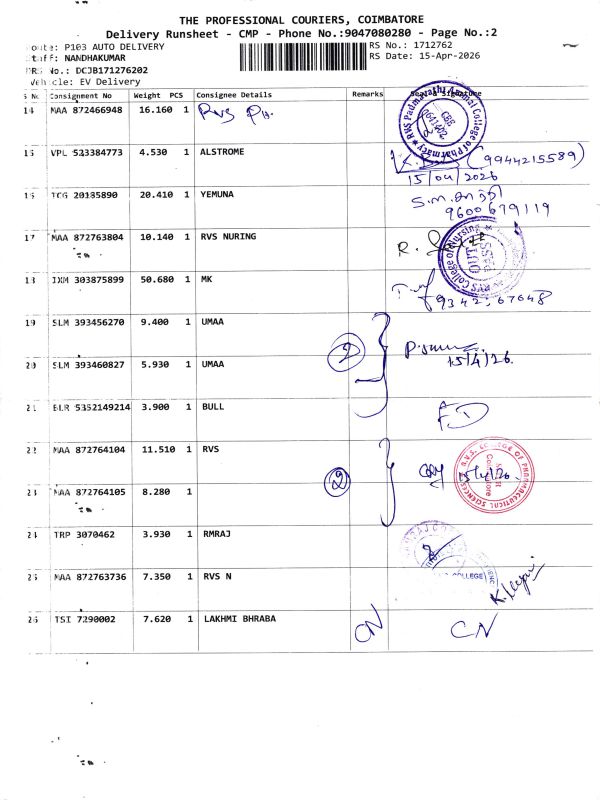 THE PROFESSIONAL COURIERS, COIMBATORE
Delivery Runsheet - CMP - Phone No.:9047080280 - Page No.:2
oute: P103 AUTO DELIVERY
taff: NANDHAKUMAR
DRS No.: DCJB171276202
Vehicle: EV Delivery
RS No.: 1712762
RS Date: 15-Apr-2026
S No Consignment No Weight PCS Consignee Details Remarks Seal & Signature
14 MAA 872466948 16.160 1 RVS PH.
RVS Padmavathi Ammal College of Pharmacy
CBE
641402
15 VPL 523384773 4.530 1 ALSTROME (9944215589)
15/04/2026
16 TCG 20185890 20.410 1 YEMUNA
9600679119
17 MAA 872763804 10.140 1 RVS NURING
R.
RVS College of Nursing
18 IXM 303875899 50.680 1 MK
19 SLM 393456270 9.400 1 UMAA
2
15/4/26.
20 SLM 393460827 5.930 1 UMAA
21 BLR 5352149214 3.900 1 BULL FD
22 MAA 872764104 11.510 1 RVS
2
R.V.S. COLLEGE OF PHARMACEUTICAL SCIENCES
23 MAA 872764105 8.280 1
24 TRP 3070462 3.930 1 RMRAJ
25 MAA 872763736 7.350 1 RVS N
COLLEGE
26 TSI 7290002 7.620 1 LAKHMI BHRABA CN CN